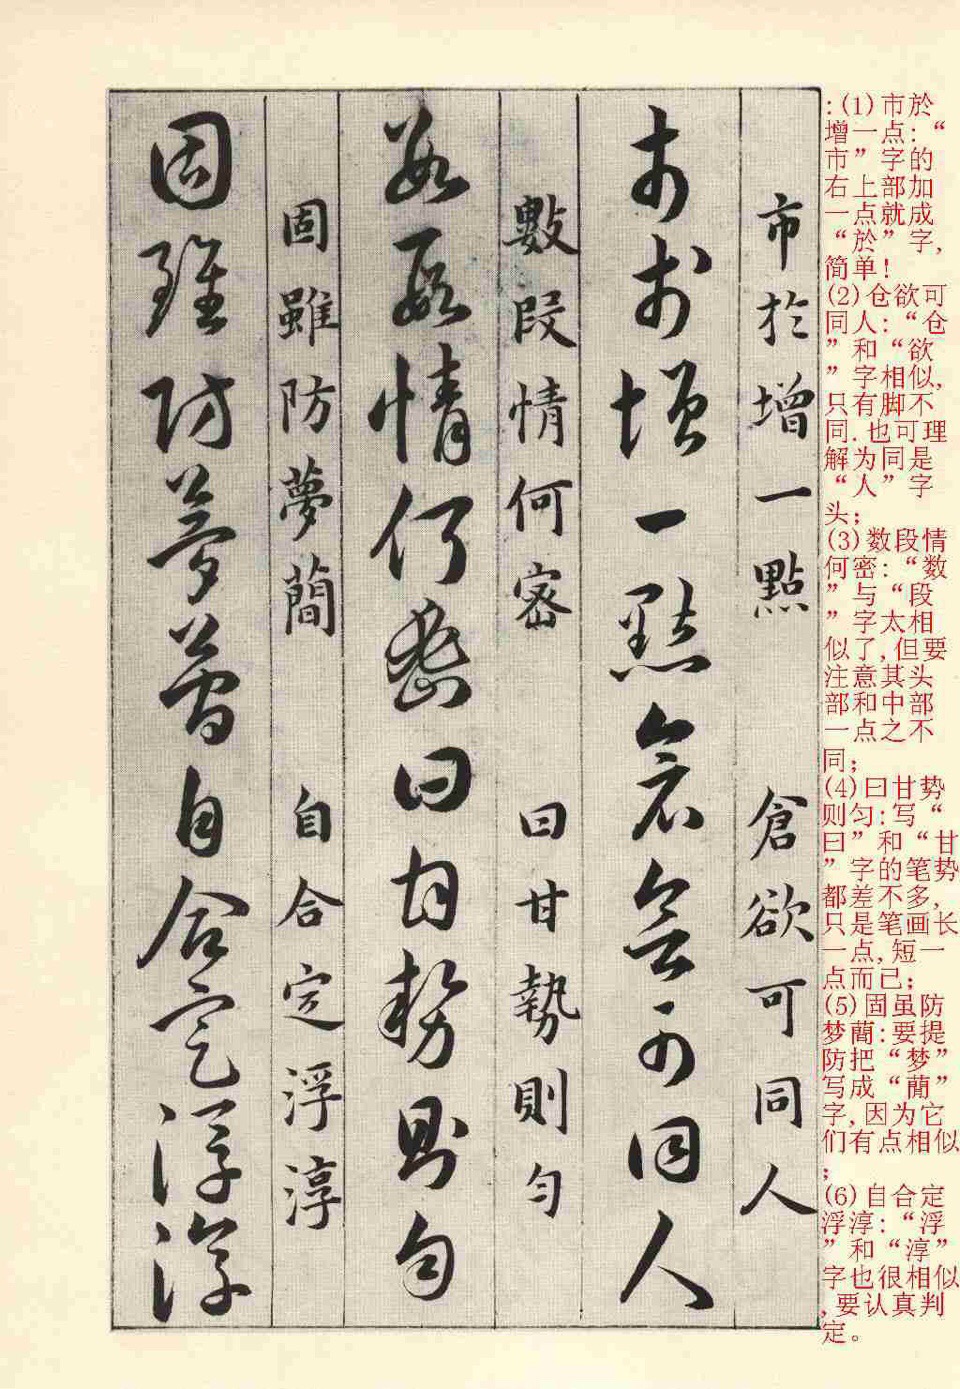 :(1)市於
增一点:“
市”字的
右上部加
一点就成
“於”字,
简单!
(2)仓欲可
同人:“仓
”和“欲
”字相似,
只有脚不
同.也可理
解为同是
“人”字
头;
(3)数段情
何密:“数
”与“段
”字太相
似了,但要
注意其头
部和中部
一点之不
同;
(4)曰甘势
则匀:写“
曰”和“甘
”字的笔势
都差不多,
只是笔画长
一点,短一
点而已;
(5)固虽防
梦蕑:要提
防把“梦”
写成“蕑”
字,因为它
们有点相似
;
(6)自合定
浮淳:“浮
”和“淳”
字也很相似
,要认真判
定。
市於增一點 倉欲可同人
市於增一點倉欲可同人
數段情何密 曰甘勢則匀
數段情何密曰甘勢則匀
固雖防夢蕑 自合定浮淳
固雖防夢蕑自合定浮淳